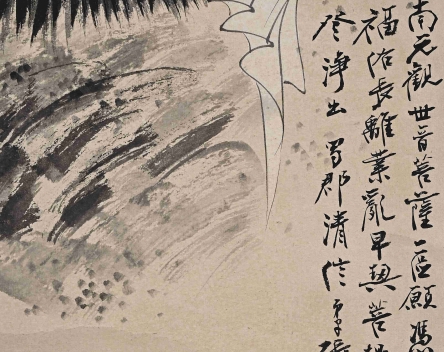 南无觀世音菩薩一區願
福佑長離業亂早與菩
登淨土 蜀郡清信弟子